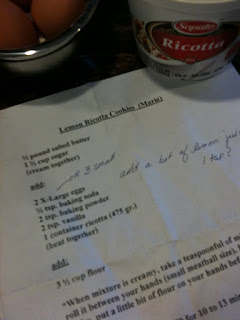 Saputo
Ricotta
Lemon Ricotta Cookies (Marie)
½ pound salted butter
1 ½ cup sugar
(cream together)
add:
or 3 small
add a bit of lemon
1 tsp?
2 X-Large eggs
½ tsp. baking soda
2 tsp. baking powder
2 tsp. vanilla
1 container ricotta (475 gr.)
(beat together)
add:
3 ½ cup flour
*When mixture is creamy, take a teaspoonful of m
roll it between your hands (small meatball size).
put a little bit of flour on your hands befo
for 10 to 13 mi